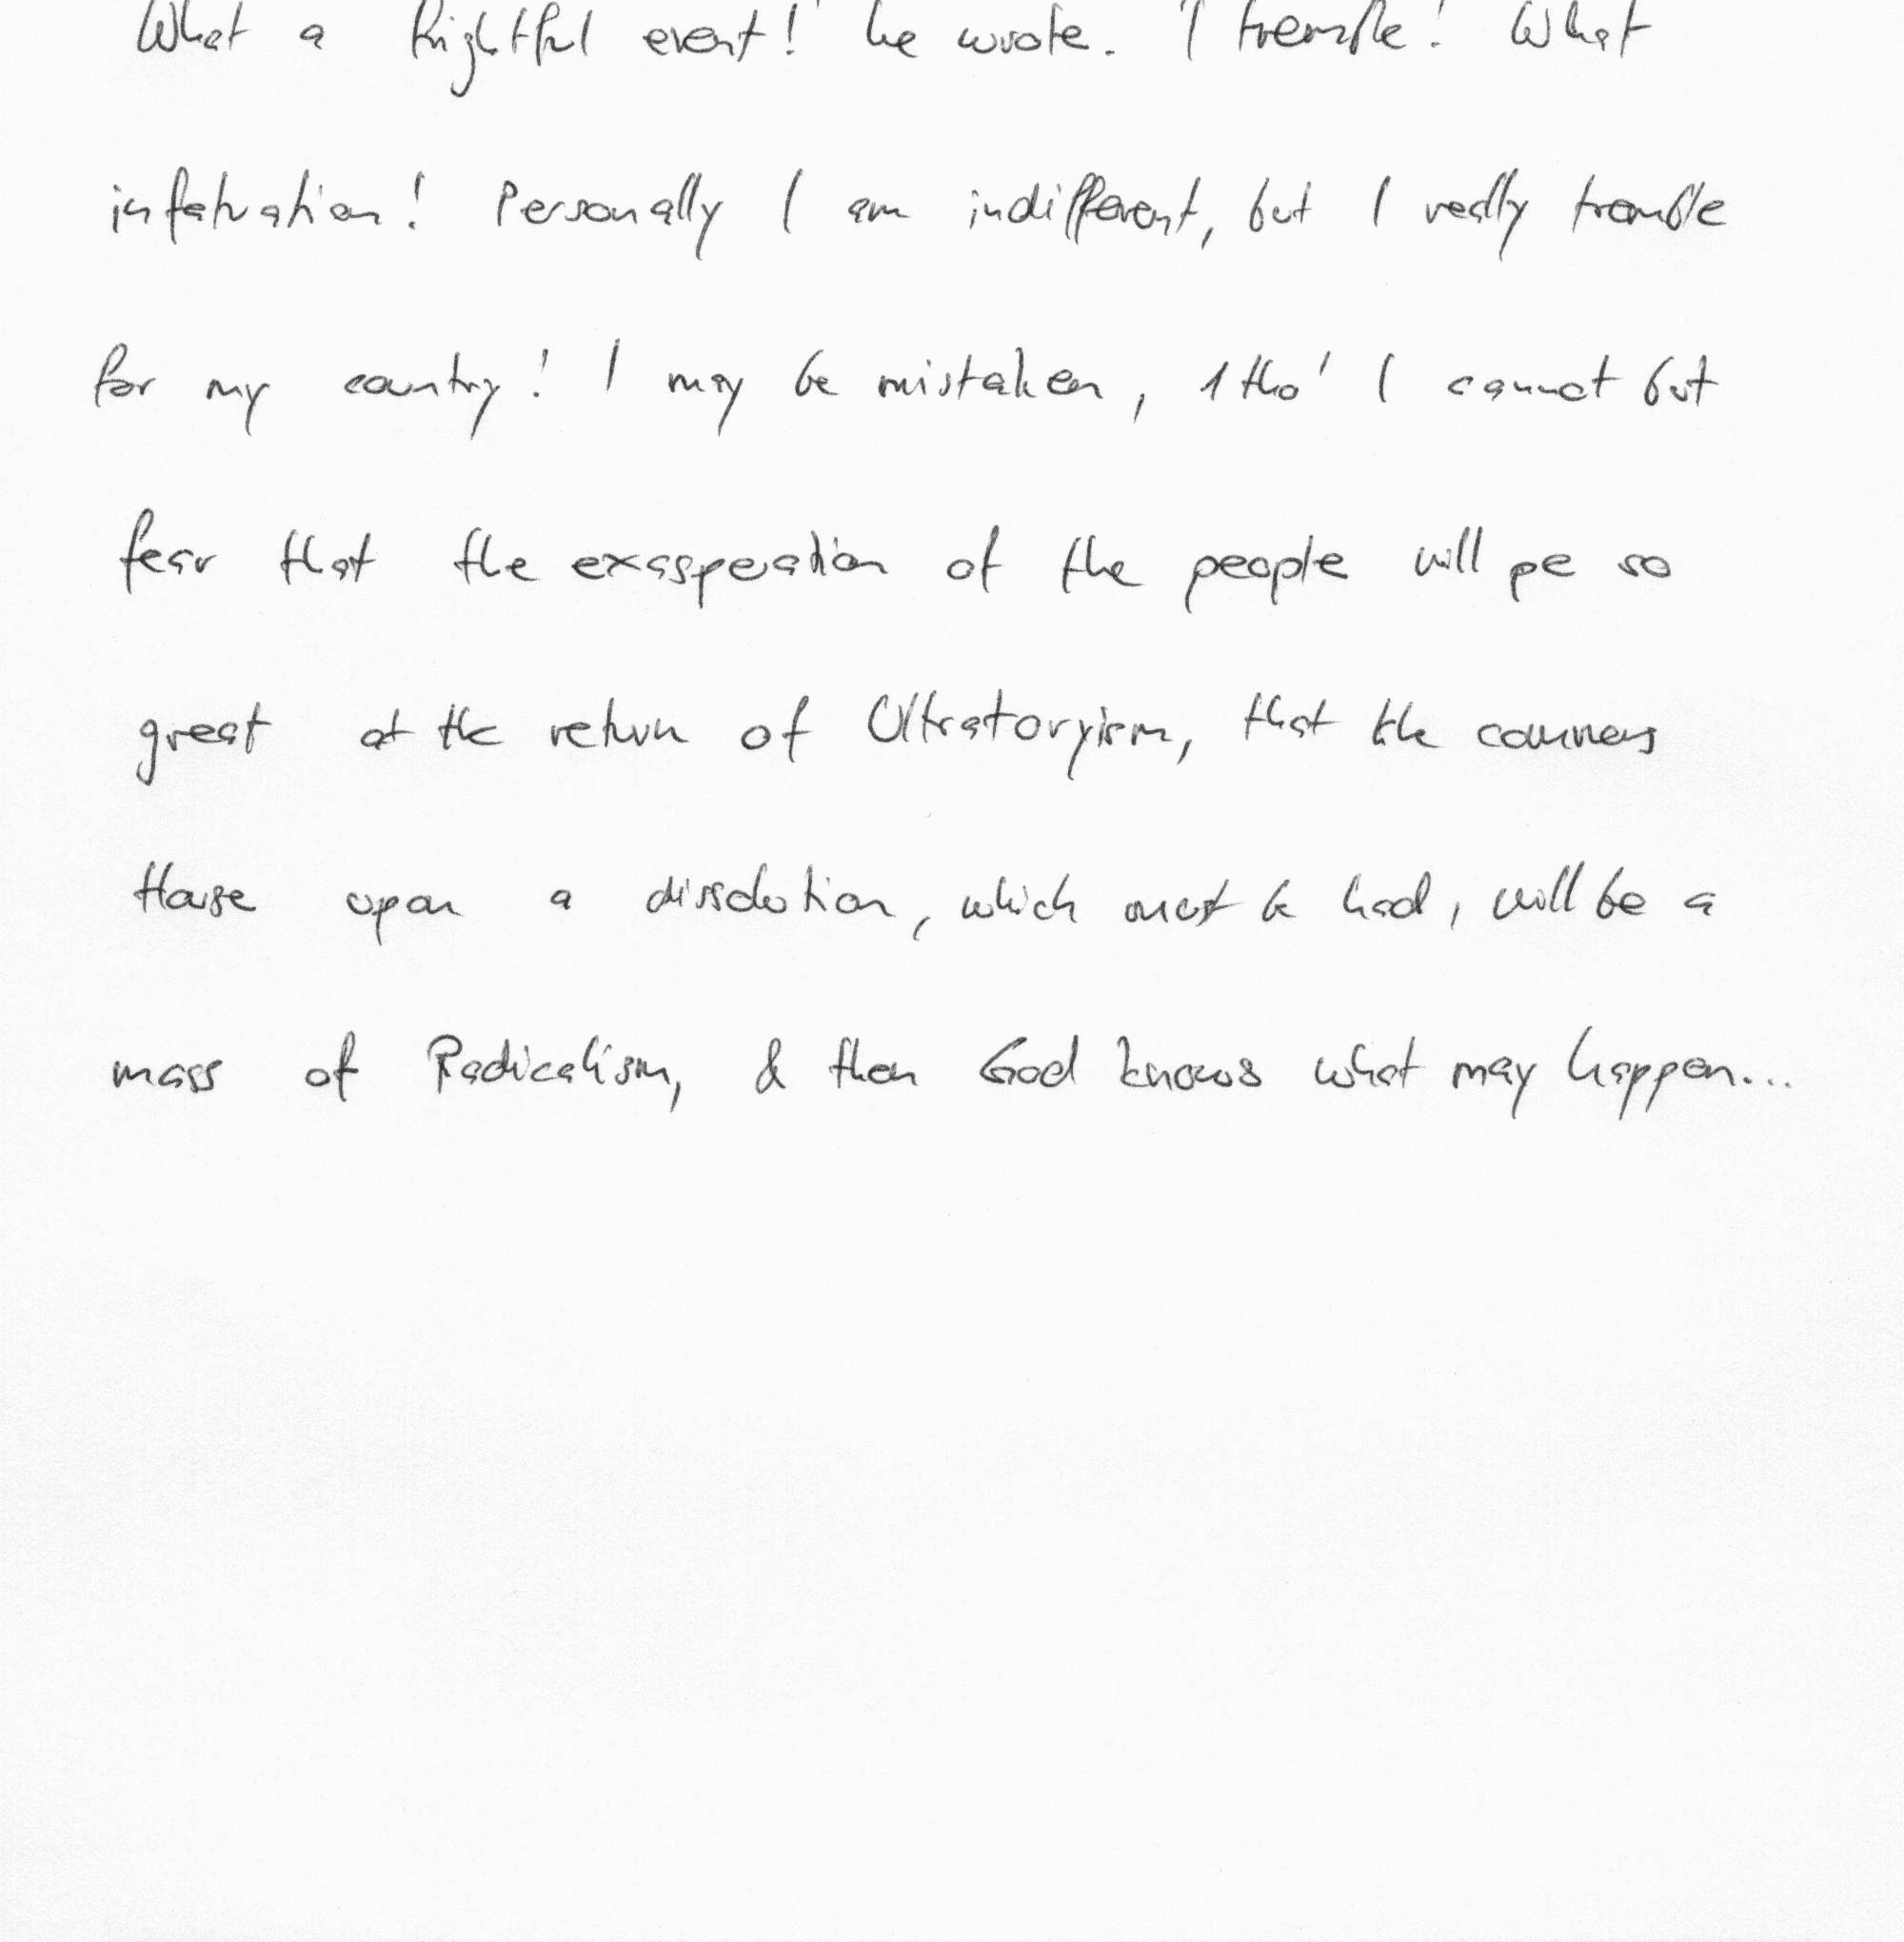 What a frightful event!' he wrote. 'I tremble! What
infatuation! Personally I am indifferent, but I really tremble
for my country! I may be mistaken, 1tho' I cannot but
fear that the exasperation of the people will pe so
great at the return of Ultratoryism, that the commons
House upon a dissolution, which must be had, will be a
mass of Radicalism, & then God knows what may happen...